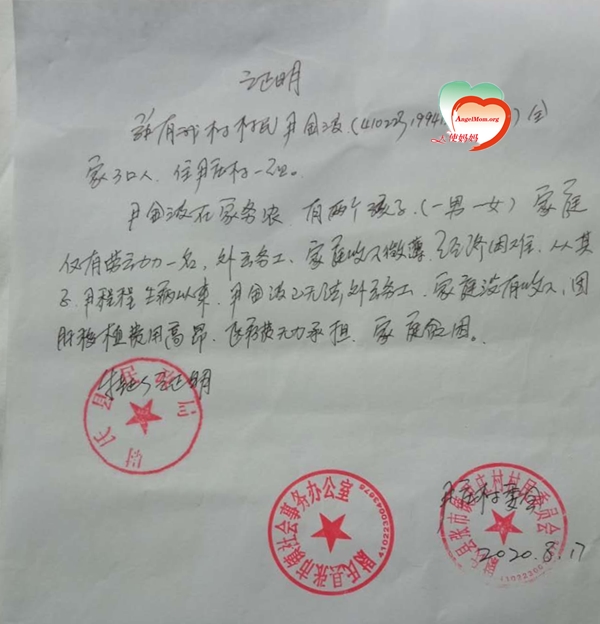 证明
AngelMom.org
天使妈妈
兹有我村村民尹金波(410223,1994 )全
家 口人,住尹庄村一组。
尹金波在家务农,有两个孩子(一男一女)家庭
仅有劳动力一名,外出务工、家庭收入微薄,经济困难,从其
子尹程程生病以来,尹金波已无法外出务工,家庭没有收入,因
肝移植费用高昂、医药费无力承担、家庭贫困。
特此证明
尉氏县民政局
尉氏县张市镇社会事务办公室
县张市镇 庄村村民委员会
尹庄村委会
2020.8.17